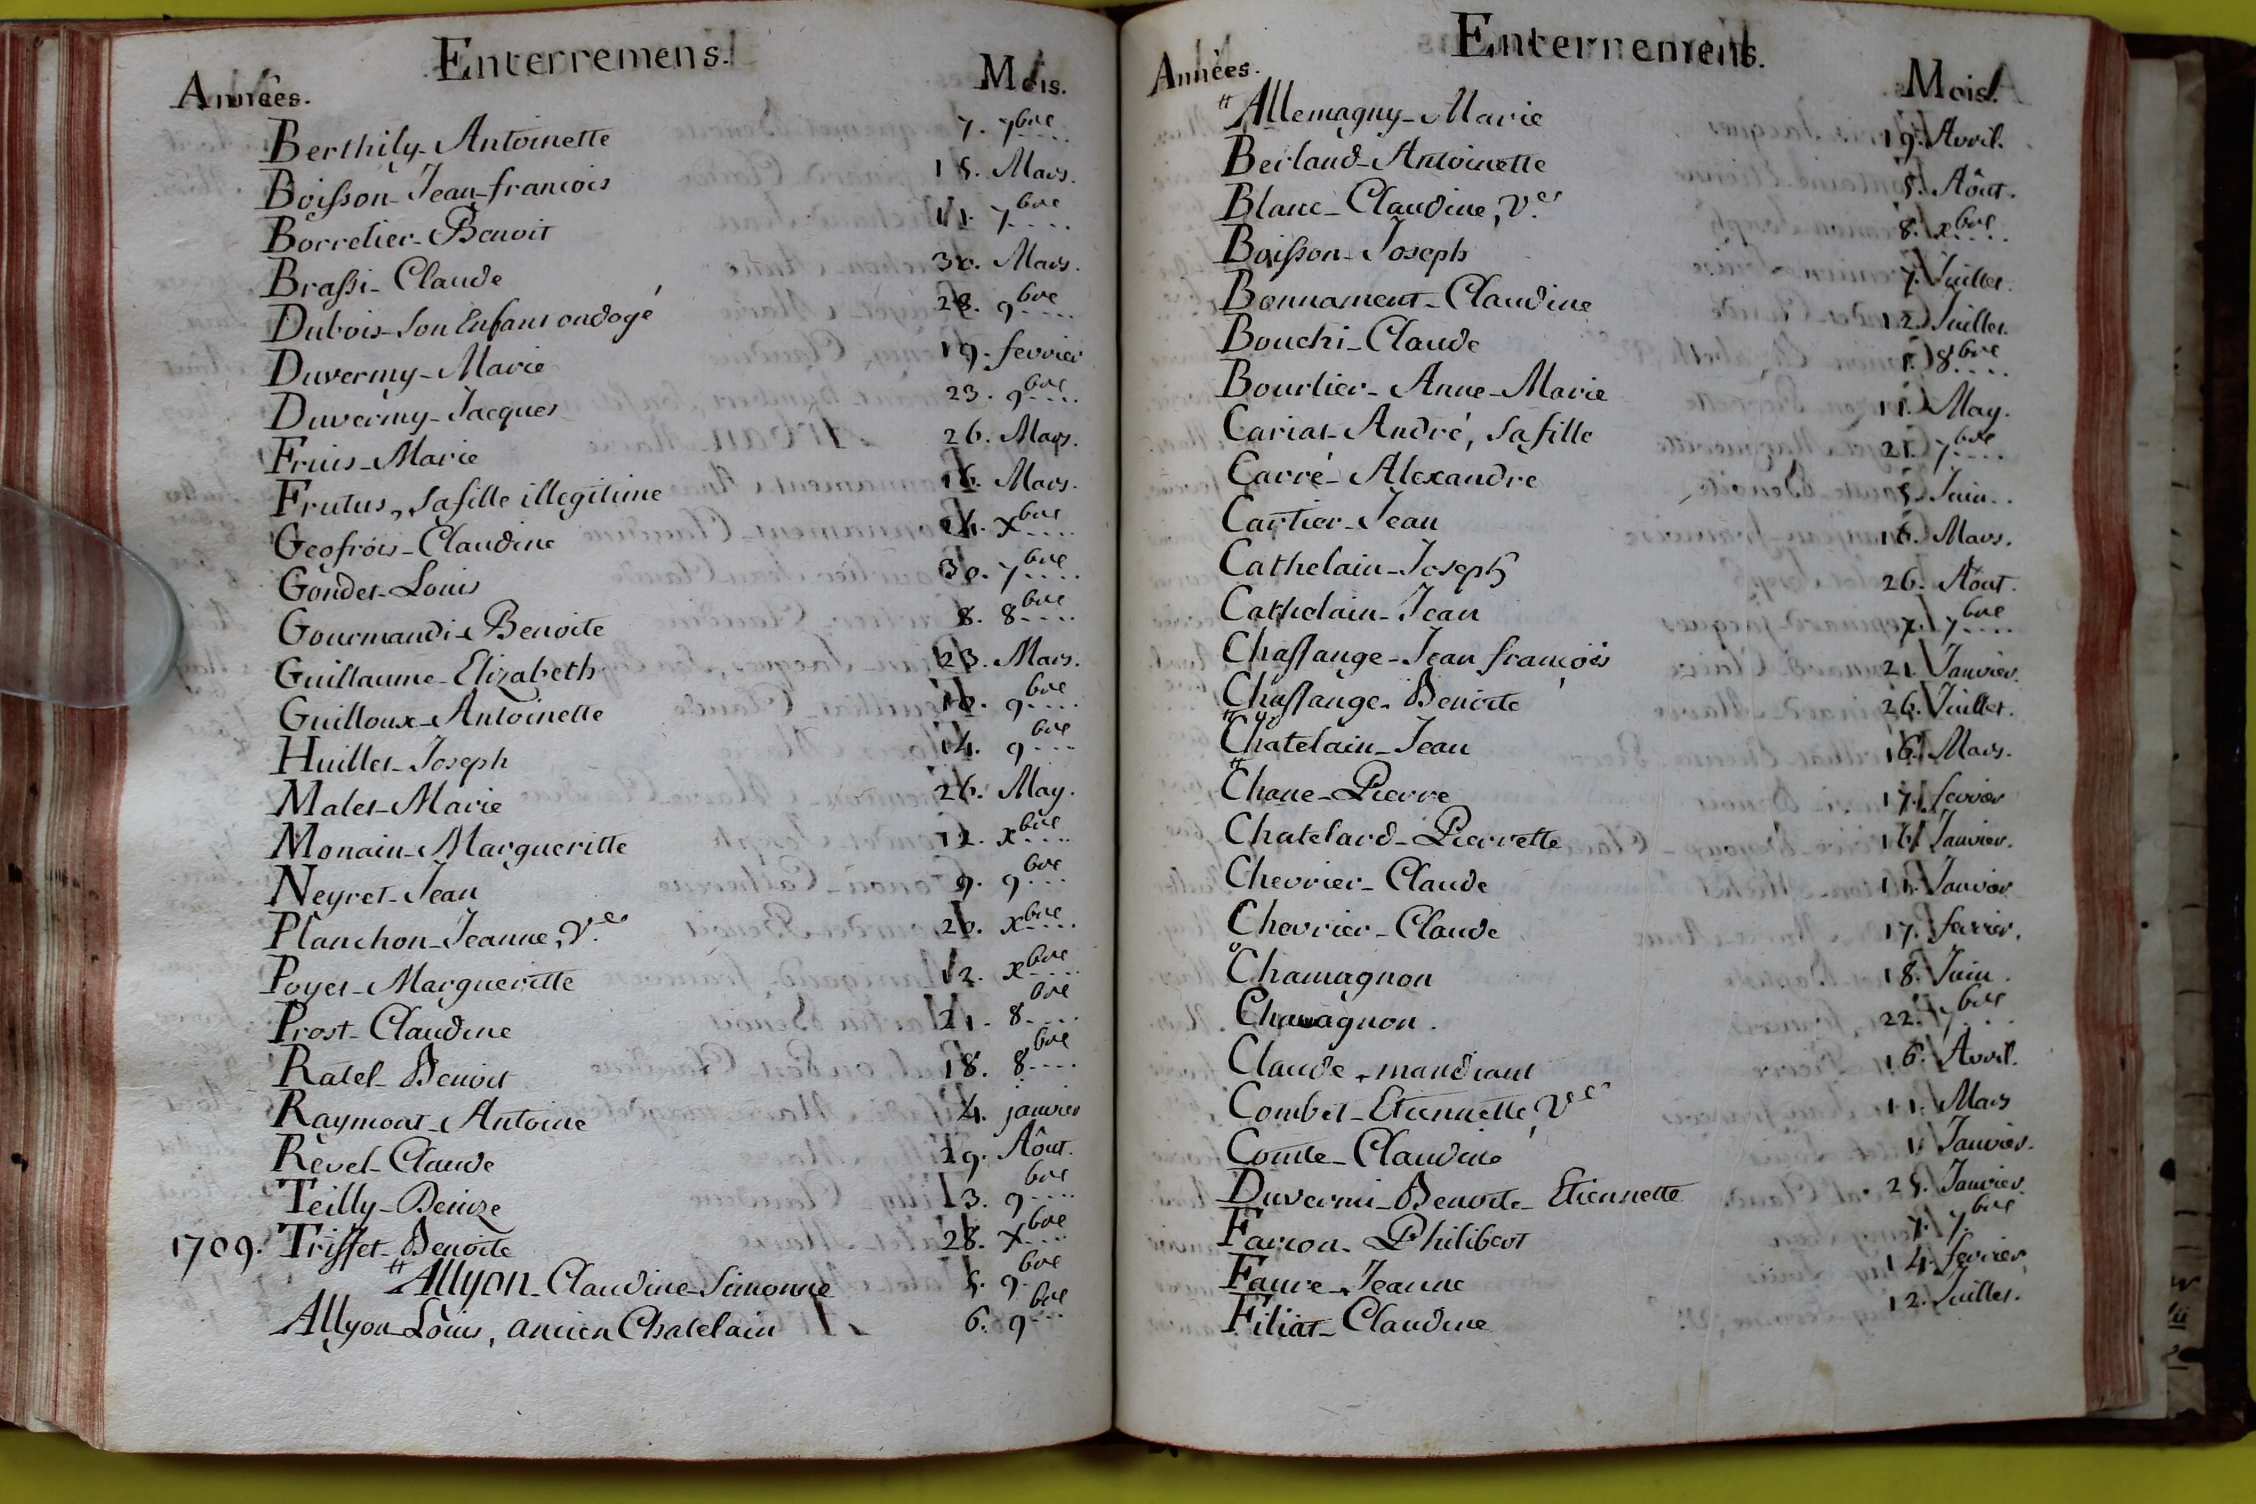 Enterremens.
Années. Mois.
Berthily-Antoinette 7. 7bre
Boisson-Jean-francois 15. Mars.
Borrelier-Benoit 11. 7bre
Brassi-Claude 30. Mars.
Dubois-son Enfant ondoyé 28. 9bre
Duvermy-Marie 19. fevrier
Duvermy-Jacques 23. 9bre
Fruis-Marie 26. Mars.
Frutus, sa fille illegitime 16. Mars.
Geofrois-Claudine 24. xbre
Gondet-Louis 30. 7bre
Gourmandi-Benoite 8. 8bre
Guillaume-Elizabeth 23. Mars.
Guilloux-Antoinette 16. 9bre
Huillet-Joseph 14. 9bre
Malet-Marie 26. May.
Monain-Margueritte 12. xbre
Neyret-Jean 9. 9bre
Planchon-Jeanne, Ve 20. xbre
Poyet-Margueritte 12. xbre
Prost-Claudine 21. 8bre
Ratel-Benoit 18. 8bre
Raymont-Antoine 4. janvier
Revel-Claude 29. Aôut.
Teilly-Denize 13. 9bre
1709. Triffet-Benoite 28. xbre
Allyon-Claudine-Simonne 5. 9bre
Allyon-Louis, ancien Chatelain 6. 9bre
Enterremens.
Années. Mois.
Allemagny-Marie 19. Avril.
Berlaud-Antoinette 5. Aôut.
Blanc-Claudine, Ve 8. xbre
Boisson-Joseph 7. Juillet.
Bonnament-Claudine 12. Juillet.
Bouchi-Claude 1. 8bre
Bourlier-Anne-Marie 11. May.
Cariat-André, sa fille 21. 7bre
Carré-Alexandre 5. Juin.
Cartier-Jean 16. Mars.
Cathelain-Joseph 26. Aôut.
Cathelain-Jean 7. 7bre
Chassange-Jean francois 21. Janvier.
Chassange-Benoite 26. Juillet.
Chatelain-Jean 16. Mars.
Chane-Pierre 17. fevrier
Chatelard-Pierrette 16. Janvier.
Chevrier-Claude 11. Janvier
Chevrier-Claude 17. fevrier.
Chamagnon 18. Juin.
Chavagnon. 22. 7bre
Claude, mandiant 16. Avril.
Combet-Etiennette, Ve 11. Mars
Comte-Claudine 1. Janvier.
Duverni-Benoite-Etiennette 25. Janvier.
Farion-Philibert 7. 7bre
Faure-Jeanne 14. fevrier
Filiat-Claudine 12. Juillet.